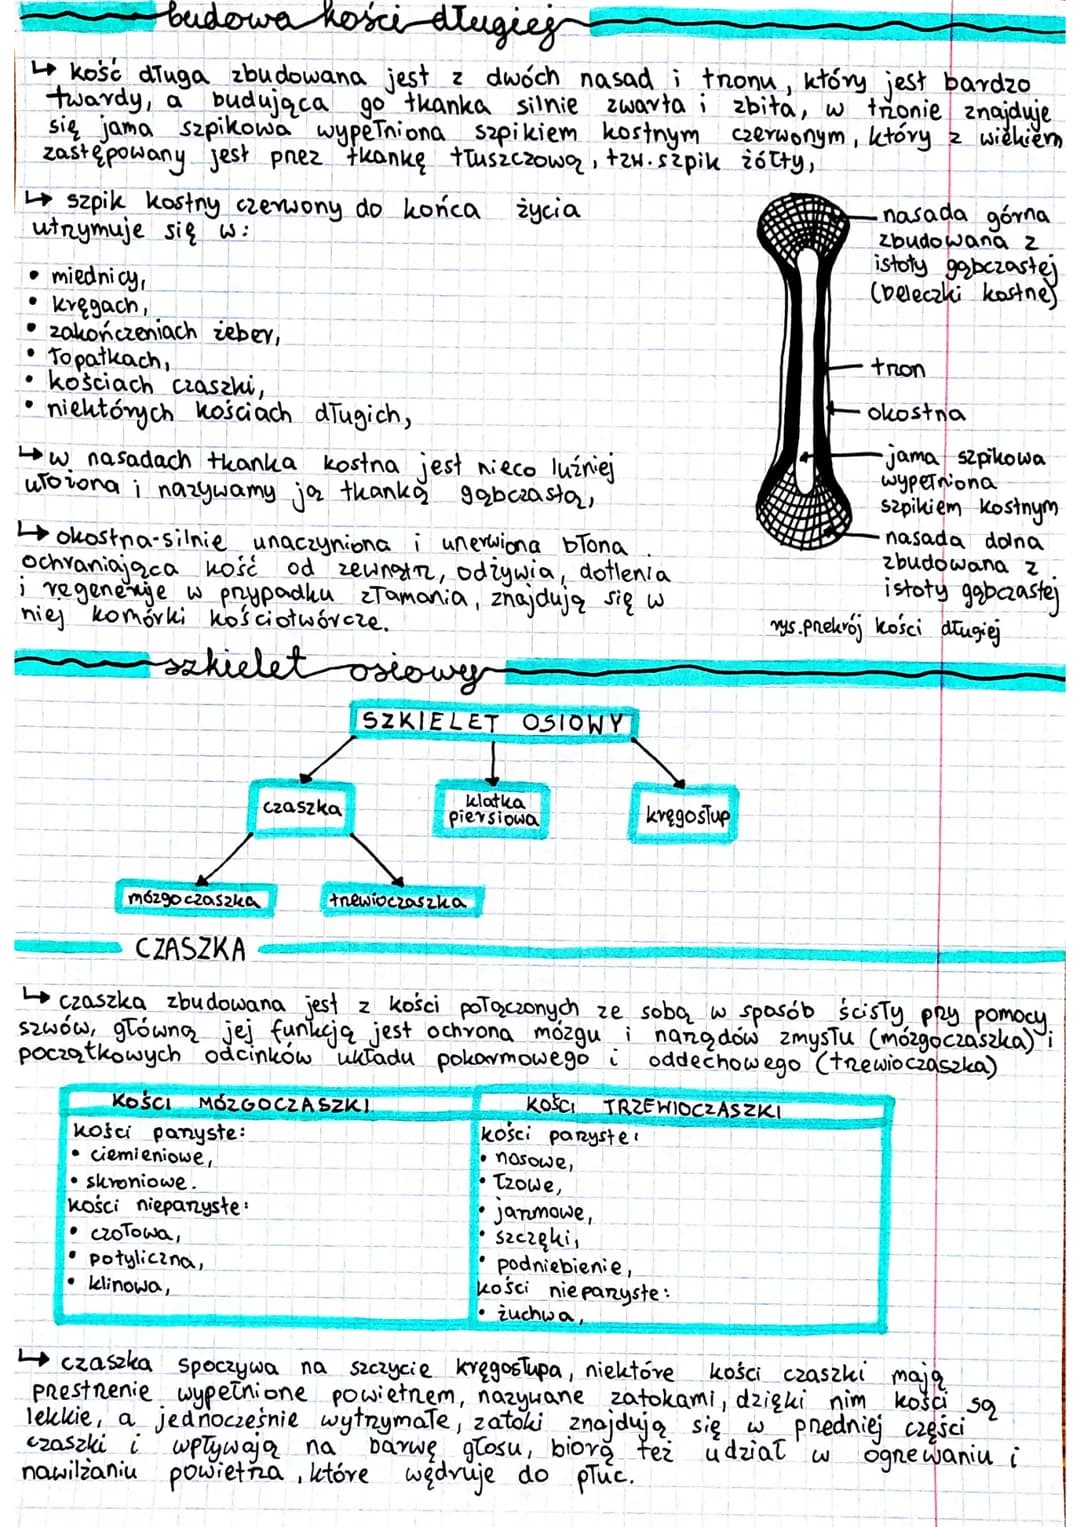 budowa kości długiej
↳ kość długa zbudowana jest z dwóch nasad i trzonu, który jest bardzo
twardy, a budująca go tkanka silnie zwarta i zbita, w trzonie znajduje
się jama szpikowa wypełniona szpikiem kostnym czerwonym, który z wiekiem
zastępowany jest przez tkankę tłuszczową, tzw. szpik żółty,
↳ szpik kostny czerwony do końca życia
utrzymuje się w:
• miednicy,
• kręgach,
• zakończeniach żeber,
• łopatkach,
• kościach czaszki,
• niektórych kościach długich,
↳ w nasadach tkanka kostna jest nieco luźniej
ułożona i nazywamy ją tkanką gąbczastą,
↳ okostna-silnie unaczyniona i unerwiona błona
ochraniająca kość od zewnątrz, odżywia, dotlenia
i regeneruje w przypadku złamania, znajdują się w
niej komórki kościotwórcze.
nasada górna
zbudowana z
istoty gąbczastej
(beleczki kostne)
trzon
okostna
jama szpikowa
wypełniona
szpikiem kostnym
nasada dolna
zbudowana z
istoty gąbczastej
rys. przekrój kości długiej
szkielet osiowy
SZKIELET OSIOWY
czaszka
klatka
piersiowa
kręgosłup
mózgoczaszka
trzewioczaszka
CZASZKA
↳ czaszka zbudowana jest z kości połączonych ze sobą w sposób ścisły przy pomocy
szwów, główną jej funkcją jest ochrona mózgu i narządów zmysłu (mózgoczaszka) i
początkowych odcinków układu pokarmowego i oddechowego (trzewioczaszka)
KOŚCI MÓZGOCZASZKI
kości parzyste:
• ciemieniowe,
• skroniowe.
kości nieparzyste:
• czołowa,
• potyliczna,
• klinowa,
KOŚCI TRZEWIOCZASZKI
kości parzyste:
• nosowe,
• łzowe,
• jarzmowe,
• szczęki,
• podniebienie,
kości nieparzyste:
• żuchwa,
↳ czaszka spoczywa na szczycie kręgosłupa, niektóre kości czaszki mają
przestrzenie wypełnione powietrzem, nazywane zatokami, dzięki nim kości są
lekkie, a jednocześnie wytrzymałe, zatoki znajdują się w przedniej części
czaszki i wpływają na barwę głosu, biorą też udział w ogrzewaniu i
nawilżaniu powietrza, które wędruje do płuc.